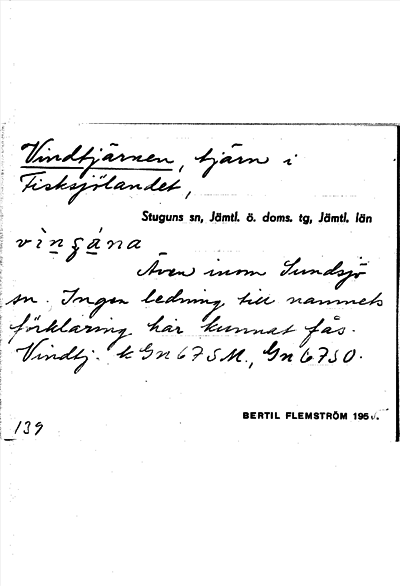 Vindtjärnen, tjärn i
Fisksjölandet,
Stuguns sn, Jämtl. ö. doms. tg, Jämtl. län
Även inom Sundsjö
sn. Ingen ledning till namnets
förklaring har kunnat fås.
Vindtj. k Gn 67 SM., Gn 67 SO.
BERTIL FLEMSTRÖM 195
139